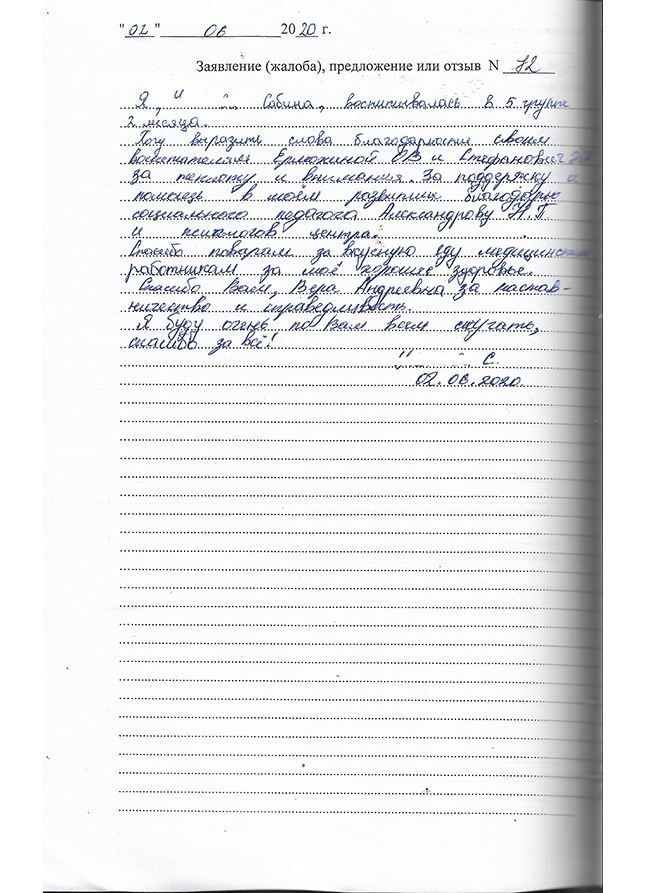 "02" 06 2020 г.
Заявление (жалоба), предложение или отзыв N 72
Я, Сабина, воспитывалась в 5 группе
2 месяца.
Хочу выразить слова благодарности своим
воспитателям Ермохиной ОВ и Стефанович
за теплоту и внимания. За поддержку и
помощь в моём развитии благодарю
социального педагога Александрову Н.П.
и психологов центра.
Спасибо поварам за вкусную еду медицинским
работникам за моё хорошее здоровье.
Спасибо Вам, Вера Андреевна за настав-
ничество и справедливость.
Я буду очень по Вам всем скучать,
спасибо за всё!
С.
02.06.2020.